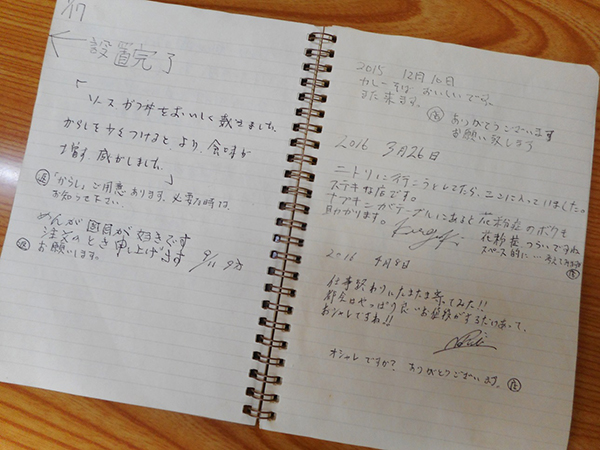 設置完了
「ソースカツ丼をおいしく戴きました。
からしを少しつけると、より、食味が
増す感がしました。」
店「からし」ご用意あります、必要な時は、
お知らせ下さい。
めんが固目が好きです
注文のとき申し上げます
店 お願いします。
2015 12月10日
カレーそば おいしいでーす。
また来ます。
店 ありがとうございます
お願い致します
2016 3月26日
ニトリに行こうとしてたら、ここに入っていました。
ステキな店です。
ナプキンがテーブルにあると花粉症のボクも
助かります。
花粉症、つらいですね
スペース的に…考えてみます
店
2016 4月8日
仕事終わりにたまたま寄ってみた!!
都会はやっぱり良いお蕎麦がするだけあって、
おシャレですね!!
オシャレですか? ありがとうございます。店